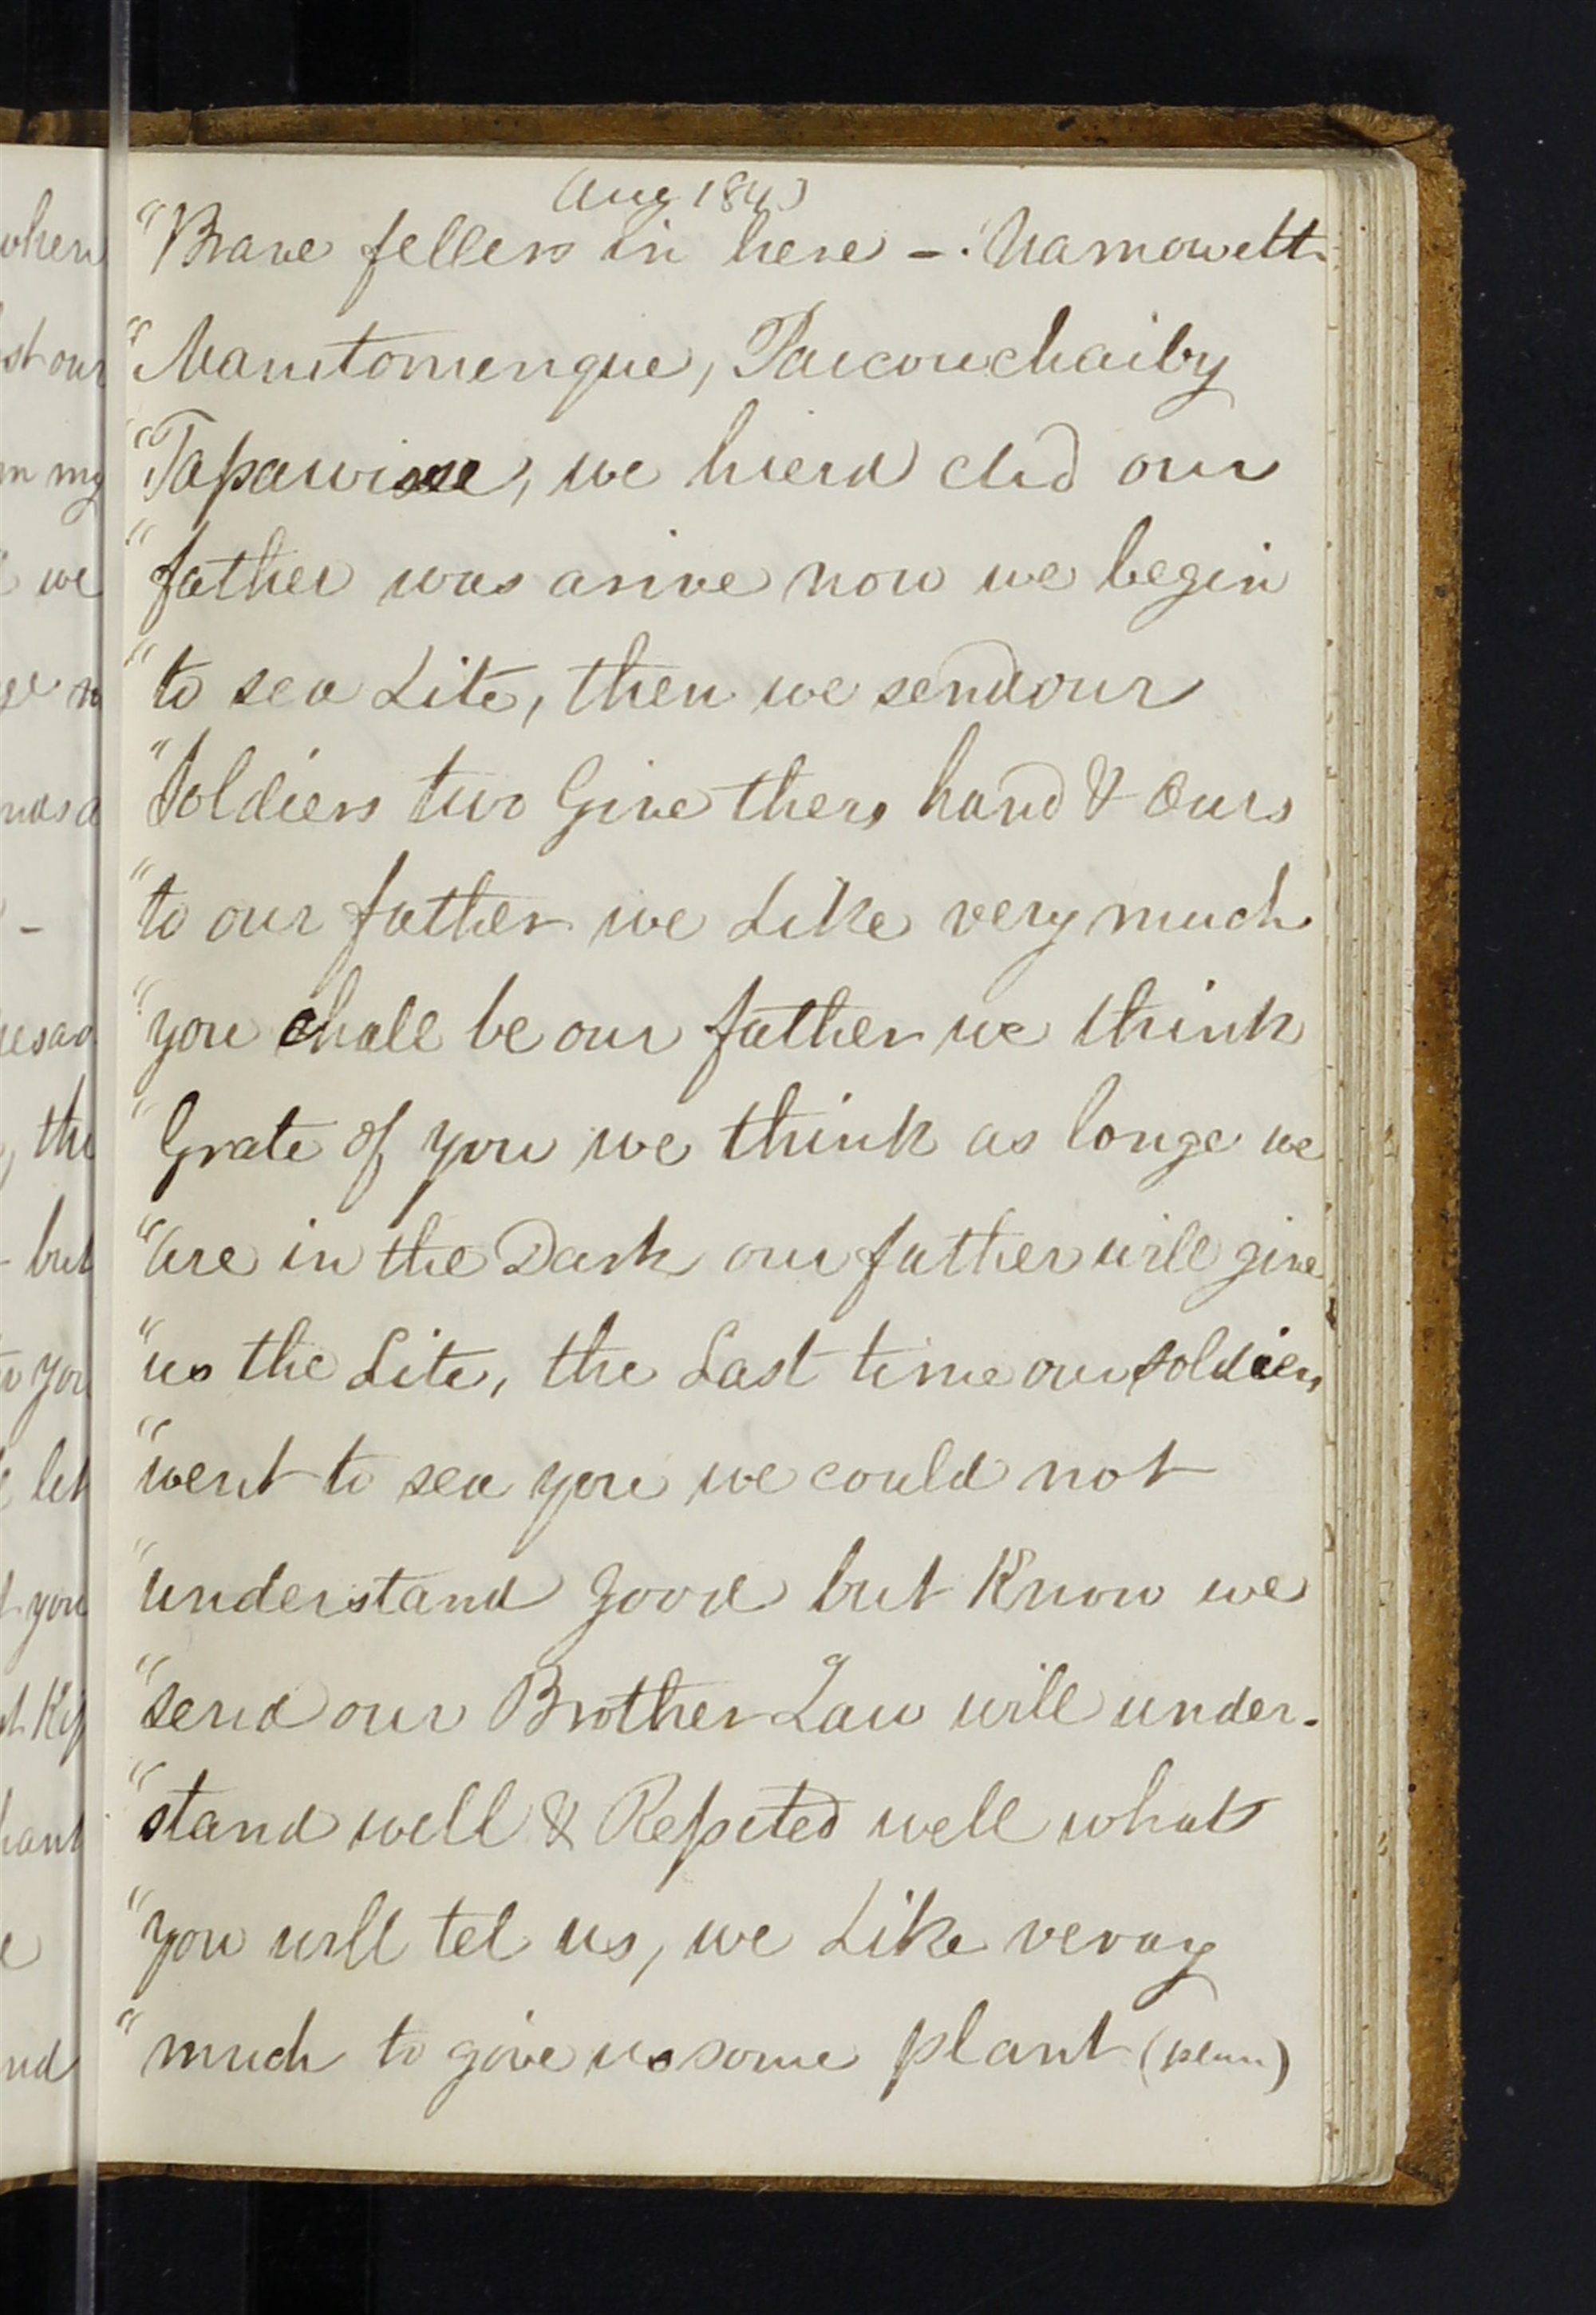 Aug 1843
"Brave fellers in here - Namowett
"Manitomenque, Paucouchaiby
"Tapawisee, we hierd did our
"father was arive now we begin
"to sea Lite, then we send our
"Soldiers two Give theres hand & Ours
"to our father we Like very much
"you chall be our father we think
"Grate of you we think as longe we
"are in the Dark our father will give
"us the Lite, the Last time our soldiers
"went to sea you we could not
"understand good but Know we
"send our Brother Law will under-
"stand well & Repeted well what
"you will tel us, we Like veray
"much to give us some plant (plan)